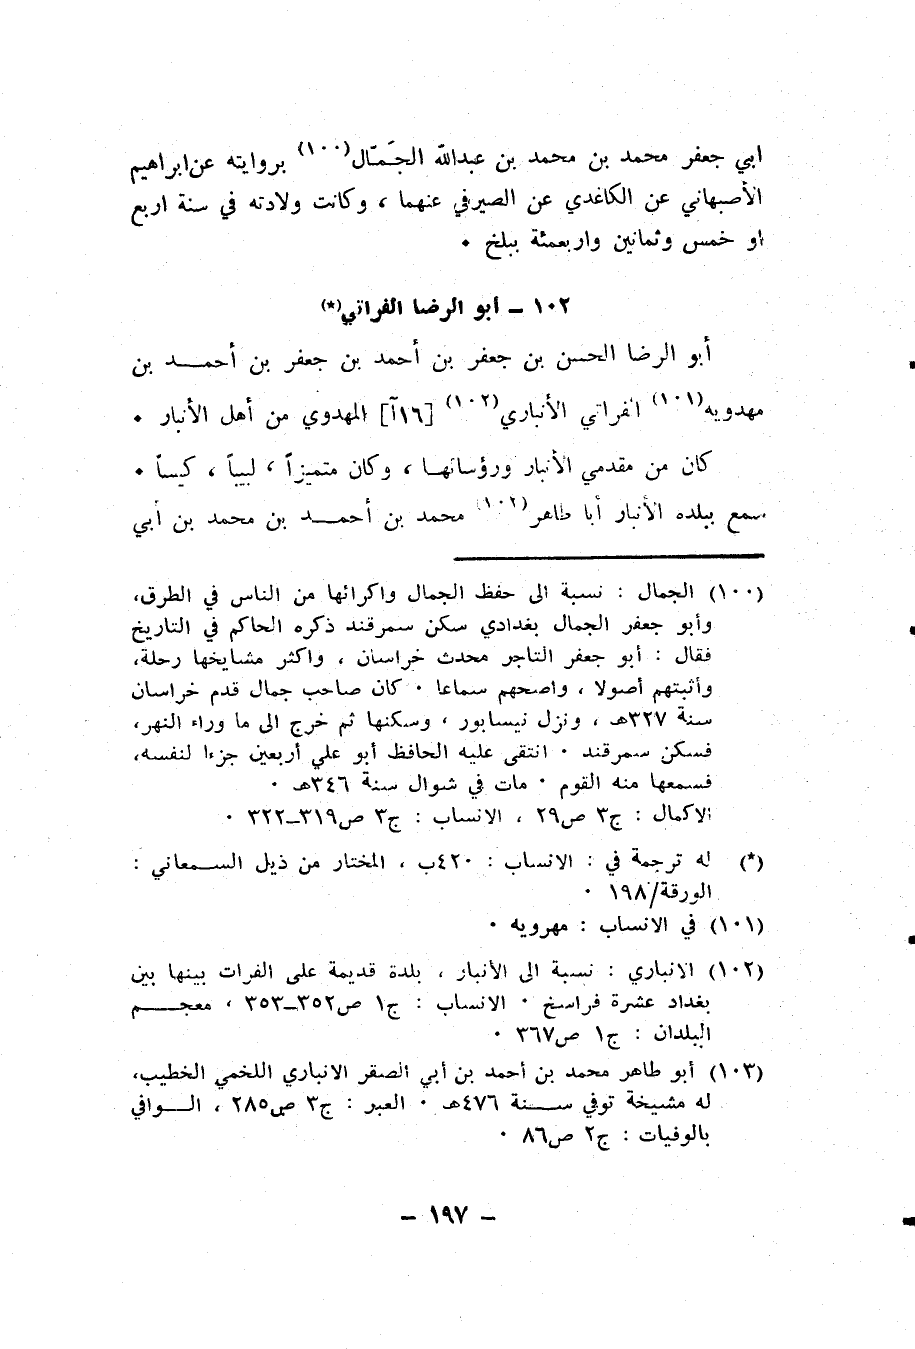 ابي جعفر محمد بن محمد بن عبدالله الجَمّال(١٠٠) بروايته عن ابراهيم
الأصبهاني عن الكاغدي عن الصيرفي عنهما ، وكانت ولادته في سنة اربع
او خمس وثمانين واربعمئة ببلخ ٠
١٠٢ – أبو الرضا الفراتي(*)
أبو الرضا الحسن بن جعفر بن أحمد بن جعفر بن أحمـــد بن
مهدويه(١٠١) الفراتي الأنباري(١٠٢) [١٦آ] المهدوي من أهل الأنبار ٠
كان من مقدمي الأنبار ورؤسائهـا ، وكان متميزاً ، لبيباً ، كيساً ٠
سمع ببلده الأنبار أبا طاهر(١٠٢) محمد بن أحمـــد بن محمد بن أبي
(١٠٠) الجمال : نسبة الى حفظ الجمال واكرائها من الناس في الطرق،
وأبو جعفر الجمال بغدادي سكن سمرقند ذكره الحاكم في التاريخ
فقال : أبو جعفر التاجر محدث خراسان ، واكثر مشايخها رحلة،
وأثبتهم أصولا ، واصحهم سماعا ٠ كان صاحب جمال قدم خراسان
سنة ٣٢٧هـ ، ونزل نيسابور ، وسكنها ثم خرج الى ما وراء النهر،
فسكن سمرقند ٠ انتقى عليه الحافظ أبو علي أربعين جزءا لنفسه،
فسمعها منه القوم ٠ مات في شوال سنة ٣٤٦هـ ٠
الاكمال : ج٣ ص٢٩ ، الانساب : ج٣ ص٣١٩–٣٢٢ ٠
(*) له ترجمة في : الانساب : ٤٢٠ب ، المختار من ذيل الســمعاني :
الورقة/١٩٨ ٠
(١٠١) في الانساب : مهرويه ٠
(١٠٢) الانباري : نسبة الى الأنبار ، بلدة قديمة على الفرات بينها بين
بغداد عشرة فراسخ ٠ الانساب : ج١ ص٣٥٢–٣٥٣ ، معجـــم
البلدان : ج١ ص٣٦٧ ٠
(١٠٣) أبو طاهر محمد بن أحمد بن أبي الصقر الانباري اللخمي الخطيب،
له مشيخة توفي ســـنة ٤٧٦هـ ٠ العبر : ج٣ ص٢٨٥ ، الـــوافي
بالوفيات : ج٢ ص٨٦ ٠
– ١٩٧ –